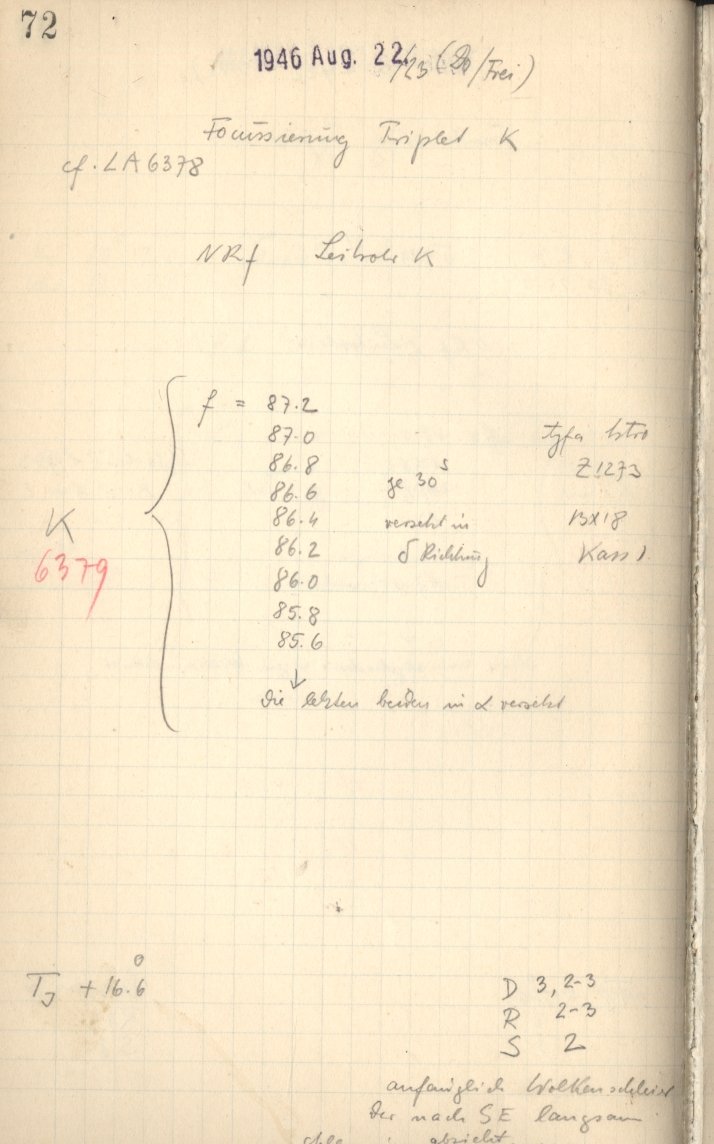 72
1946 Aug. 22./23 (/Frei)
Focussierung Triplet K
cf. LA6378
NRf Leitrohr K
f = 87.2
87.0
86.8
86.6
86.4
86.2
86.0
85.8
85.6
je 30s
versetzt in
δ Richtung
Astro
Z1273
13x18
Kass 1
K
6379
die letzten beiden in α versetzt
TJ +16.6°
D 3, 2-3
R 2-3
S 2
anfänglich Wolkenschleier
der nach SE langsam
abzieht